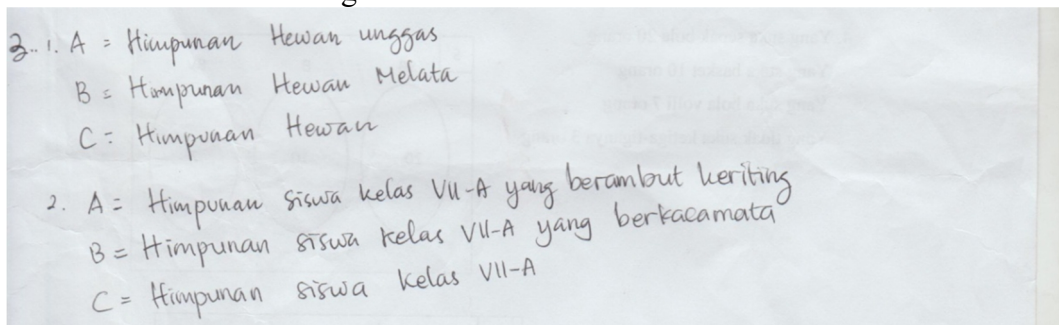 3.. 1. A = Himpunan Hewan unggas
B = Himpunan Hewan Melata
C = Himpunan Hewan
2. A = Himpunan siswa kelas VII-A yang berambut keriting
B = Himpunan siswa kelas VII-A yang berkacamata
C = Himpunan siswa kelas VII-A